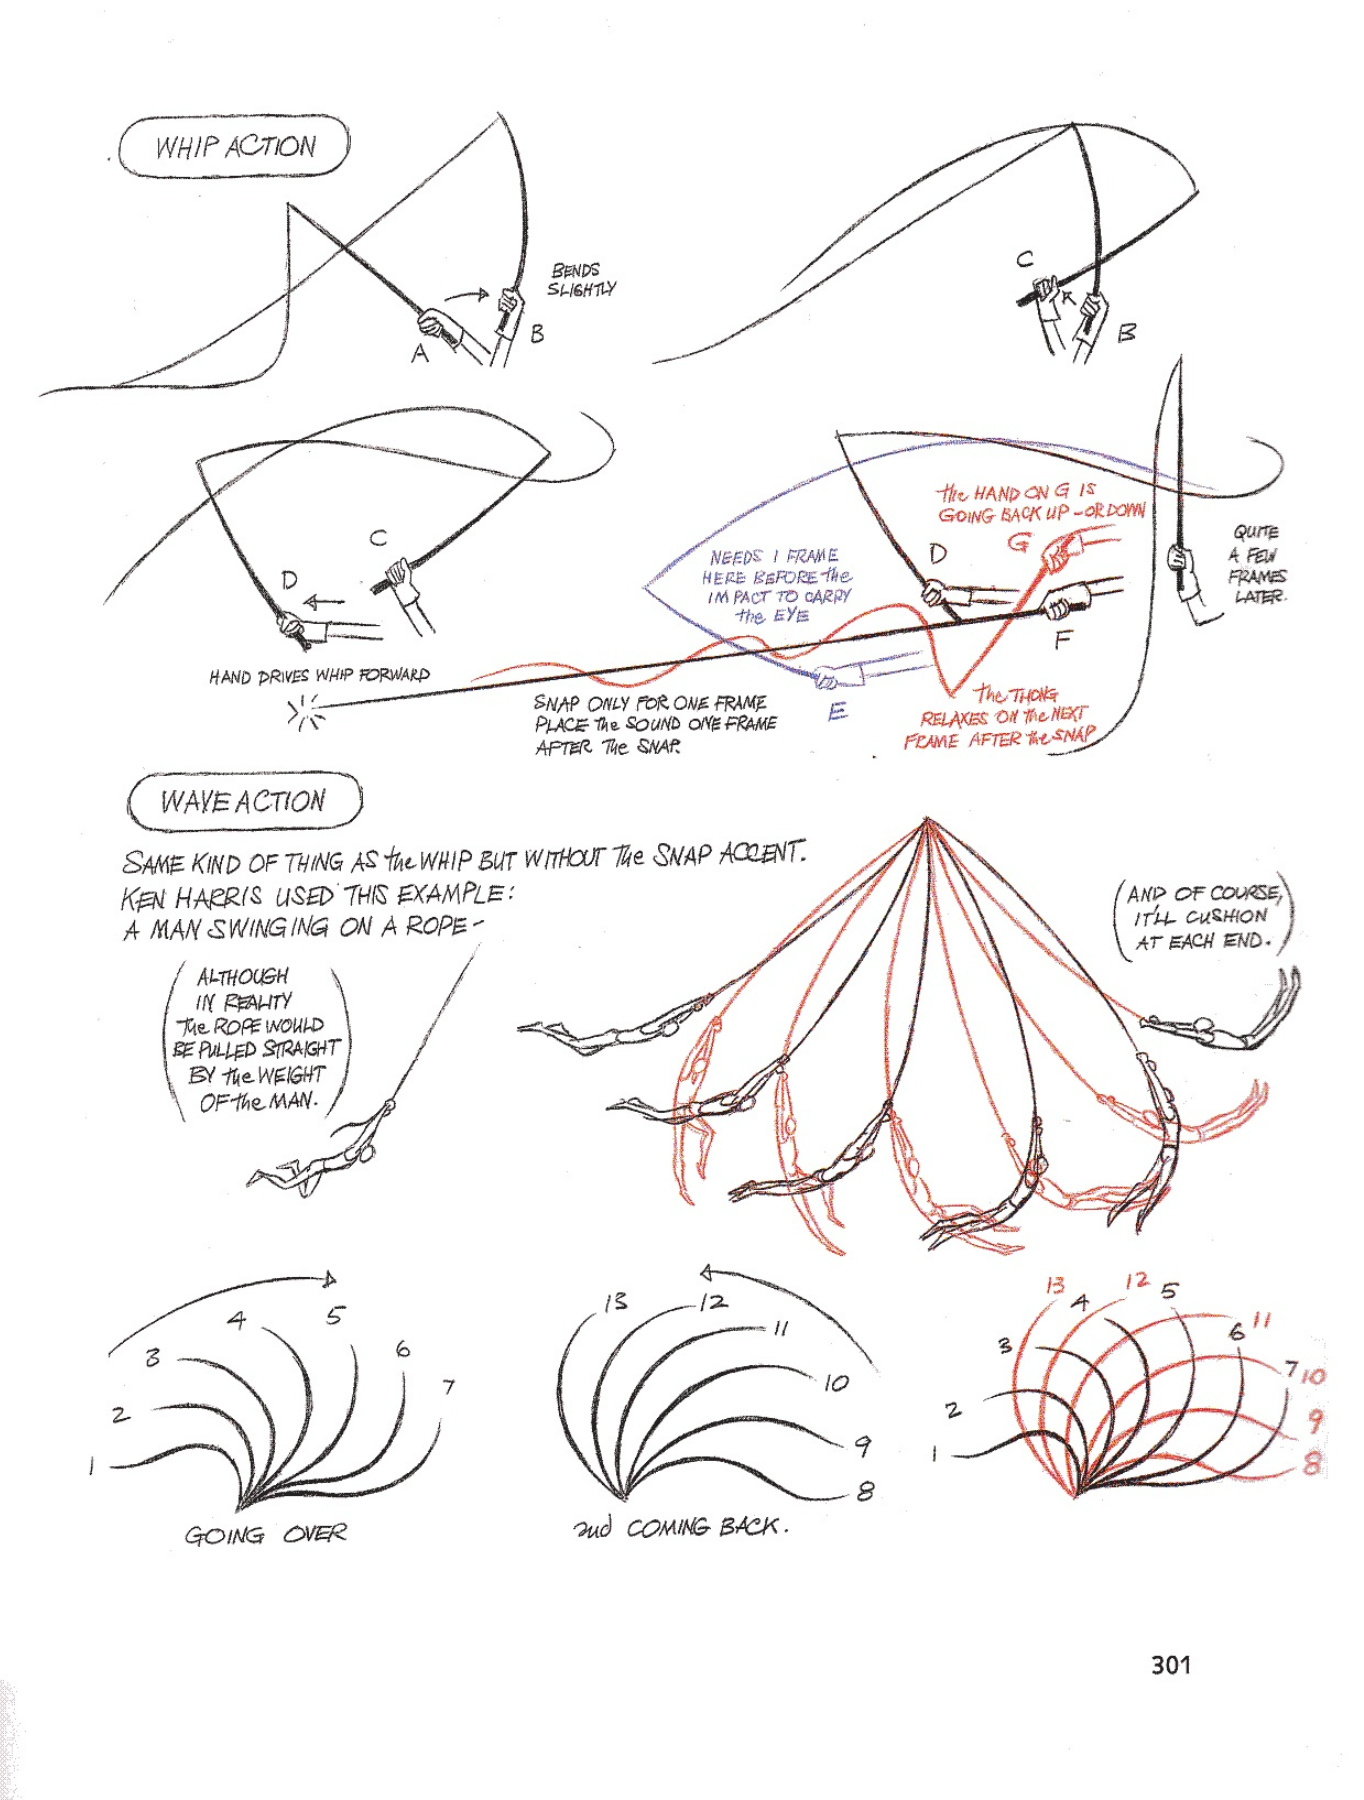 WHIP ACTION
BENDS
SLIGHTLY
A
B
C
B
C
D
HAND DRIVES WHIP FORWARD
NEEDS 1 FRAME
HERE BEFORE the
IMPACT TO CARRY
the EYE
D
the HAND ON G IS
GOING BACK UP - OR DOWN
G
F
E
QUITE
A FEW
FRAMES
LATER.
SNAP ONLY FOR ONE FRAME
PLACE the SOUND ONE FRAME
AFTER The SNAP.
the THONG
RELAXES ON the NEXT
FRAME AFTER the SNAP
WAVE ACTION
SAME KIND OF THING AS the WHIP BUT WITHOUT The SNAP ACCENT.
KEN HARRIS USED THIS EXAMPLE:
A MAN SWINGING ON A ROPE -
(ALTHOUGH
IN REALITY
The ROPE WOULD
BE PULLED STRAIGHT
BY the WEIGHT
OF the MAN.)
(AND OF COURSE,
IT'LL CUSHION
AT EACH END.)
1
2
3
4
5
6
7
GOING OVER
13
12
11
10
9
8
and COMING BACK.
1
2
3
13
4
12
5
6
11
7
10
9
8
301